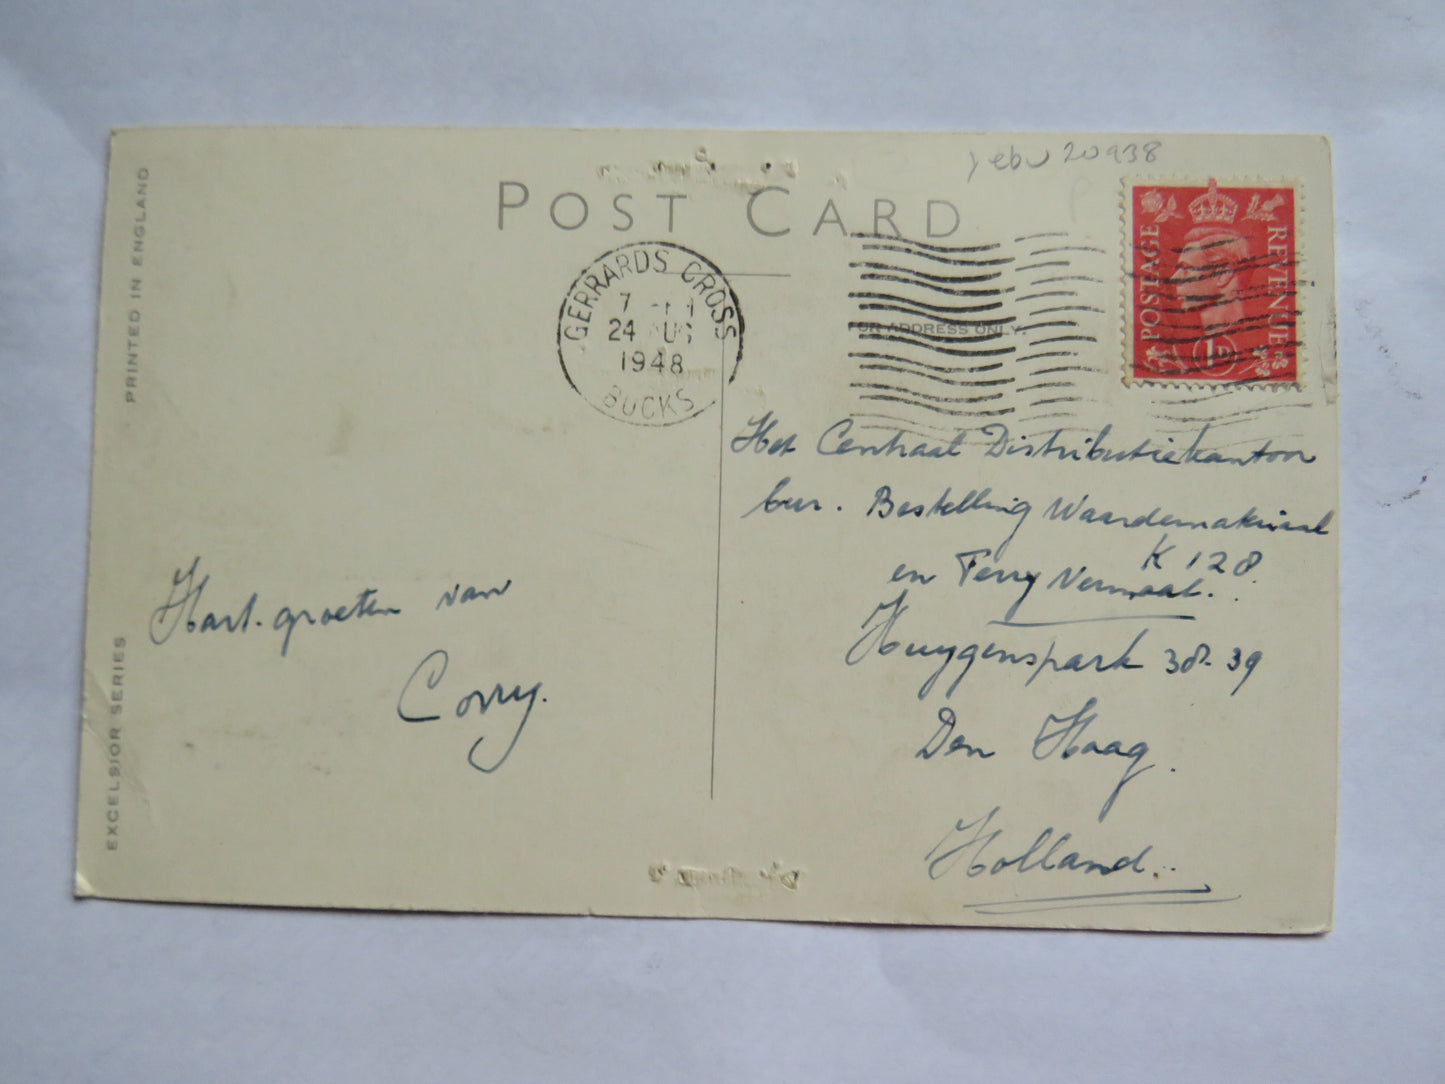 PRINTED IN ENGLAND
EXCELSIOR SERIES
POST CARD
20938
GERRARDS CROSS
7
24 AUG
1948
BUCKS
POSTAGE
REVENUE
1D
FOR ADDRESS ONLY.
Hart. groeten van
Corry.
Het Centraal Distributiekantoor
bur. Bestelling Waardemateriaal
K 128
en Ferry Vermaat.
Huygenspark 38-39
Den Haag.
Holland.